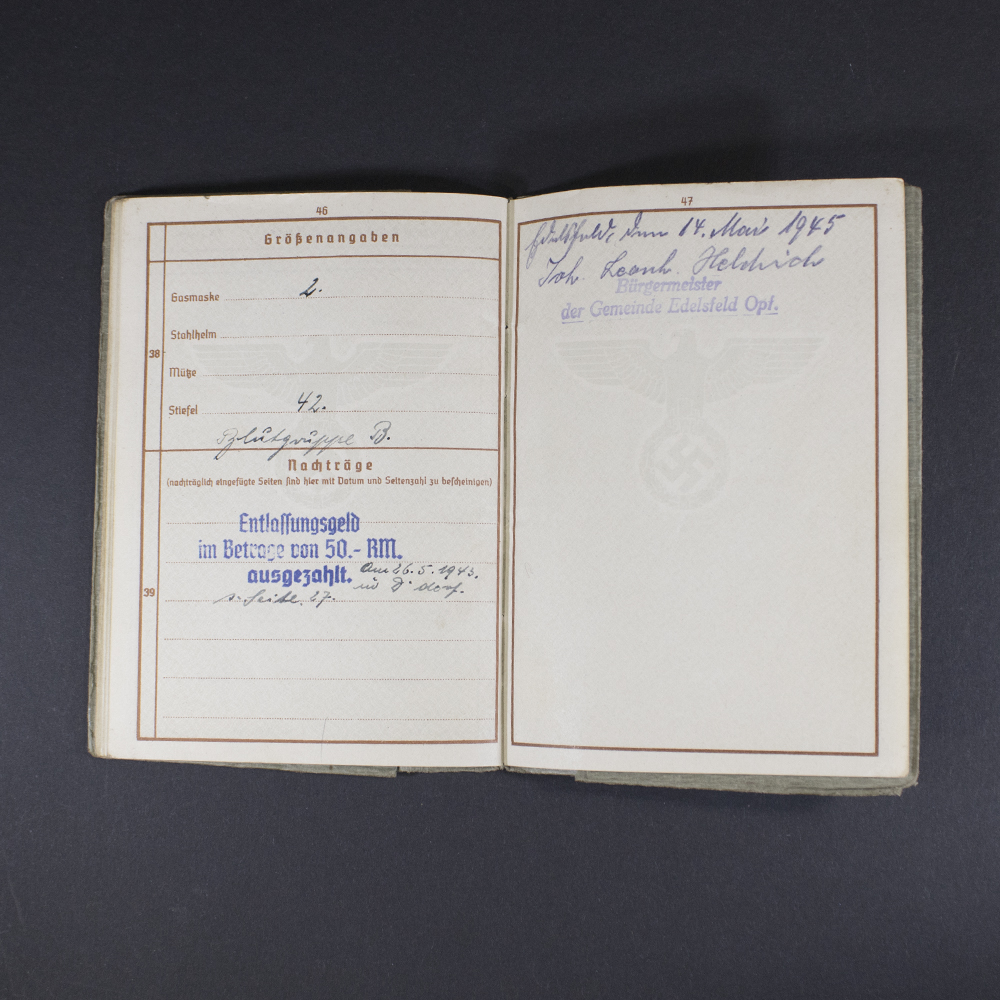 46
Größenangaben
Gasmaske 2.
Stahlhelm
38
Mütze
Stiefel 42.
Blutgruppe B.
Nachträge
(nachträglich eingefügte Seiten sind hier mit Datum und Seitenzahl zu bescheinigen)
Entlassungsgeld
im Betrage von 50.- RM.
ausgezahlt. Am 26.5.1943.
in D'dorf.
39
s. Seite 27.
47
Edelsfeld, den 14. Mai 1945
Joh. Leonh. Heldrich
Bürgermeister
der Gemeinde Edelsfeld Opf.